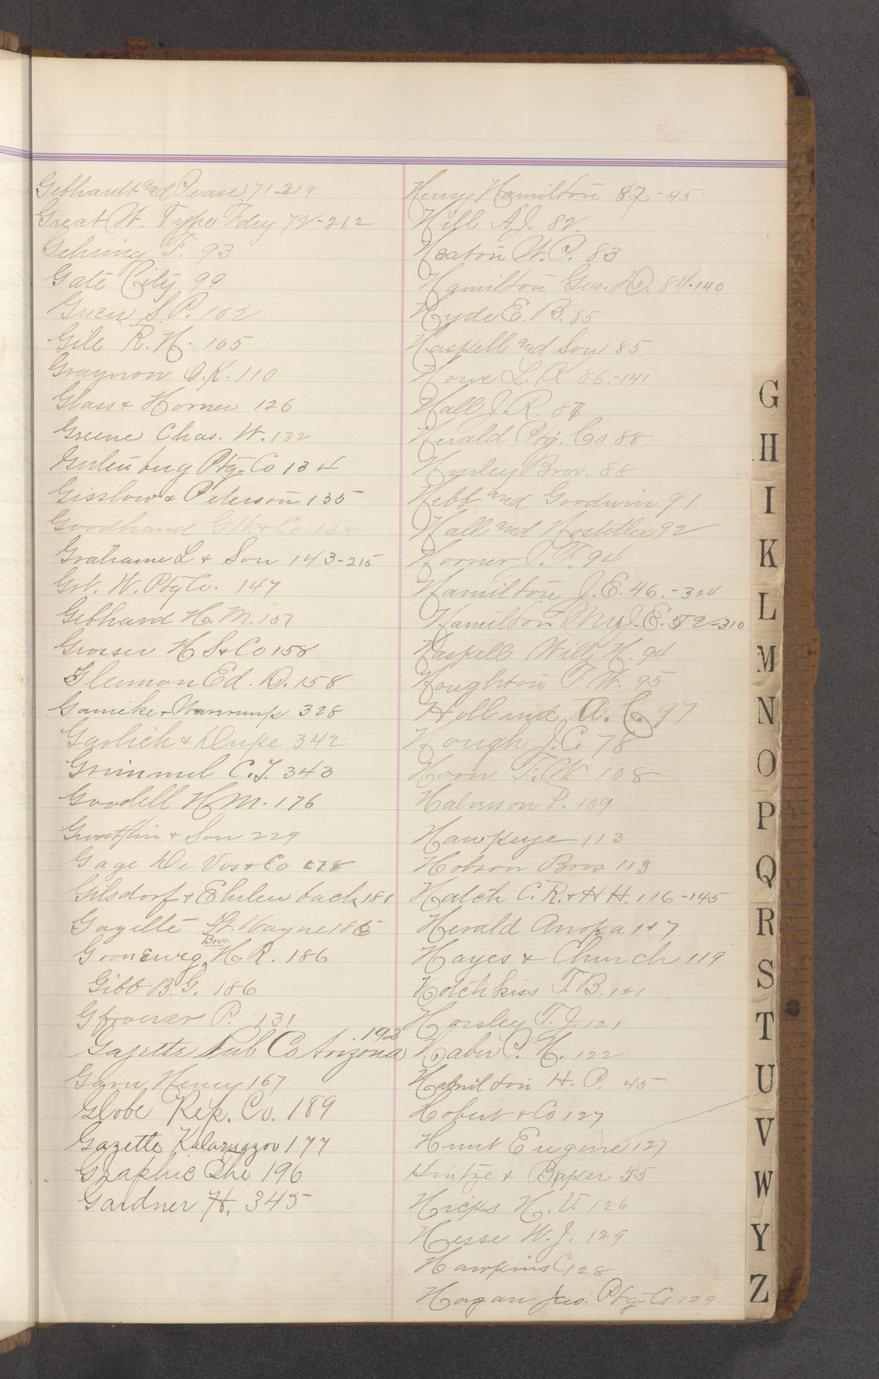 Gebhardt and Pease 71-219
Great W. Type Fdry 72-212
Gehring F. 93
Gate City 99
Green S. P. 102
Gile R. H. 105
O. K. 110
Glass & Horner 126
Greene Chas. W. 132
Ptg. Co 134
Gisslow & Peterson 135
Goodhand & Co 135
Grahame L & Son 143-215
Gt. W. Ptg Co. 147
Gebhard H. M. 157
Grosser H S & Co 158
Glennon Ed. D. 158
Gamike & 328
Garlich & Dupe 342
Grimmel C. J. 343
Goodell H M. 176
& Son 229
Gage De Vos & Co 178
Gilsdorf & Ehelenback 181
Gazette Ft. Wayne 185
Bros.
H. R. 186
Gibb B. G. 186
P. 131
192
Gazette Pub Co Arizona
Henry 167
Globe Rep. Co. 189
Gazette Kalamazoo 177
Graphic The 196
Gardner H. 345
Henry Hamilton 87-45
Hill A. J. 82
Heaton W. P. 83
Hamilton Geo. D. 84-140
Hyde E. B. 85
Haskell and Son 85
Howe L. R. 86-141
Hall J. R. 87
Herald Ptg. Co 88
Hurley Bros. 88
Hebb and Goodwin 91
Hall and Hostetler 92
Horner J. F. 94
Hamilton J. E. 46-324
Hamilton J. E. 52-310
Haskell Will H. 94
Houghton T. W. 95
Holland A. C. 97
Hough J. C. 78
Horn T. W 108
Halvorson P. 109
Hawkeye 113
Hobson Bros 113
Hatch C. R. & H H. 116-145
Herald Anoka 117
Hayes & Church 119
Hotchkiss T. B. 121
Horsley T. J. 121
Haber C. H. 122
Hamilton H. P. 45
Hobert & Co 127
Hunt Eugene 127
Hintze & Baker 55
Hicks H. V. 126
Hesse W. J. 129
Hawkins C 128
Hagan Jas. Ptg. Co 129
G
H
I
K
L
M
N
O
P
Q
R
S
T
U
V
W
Y
Z